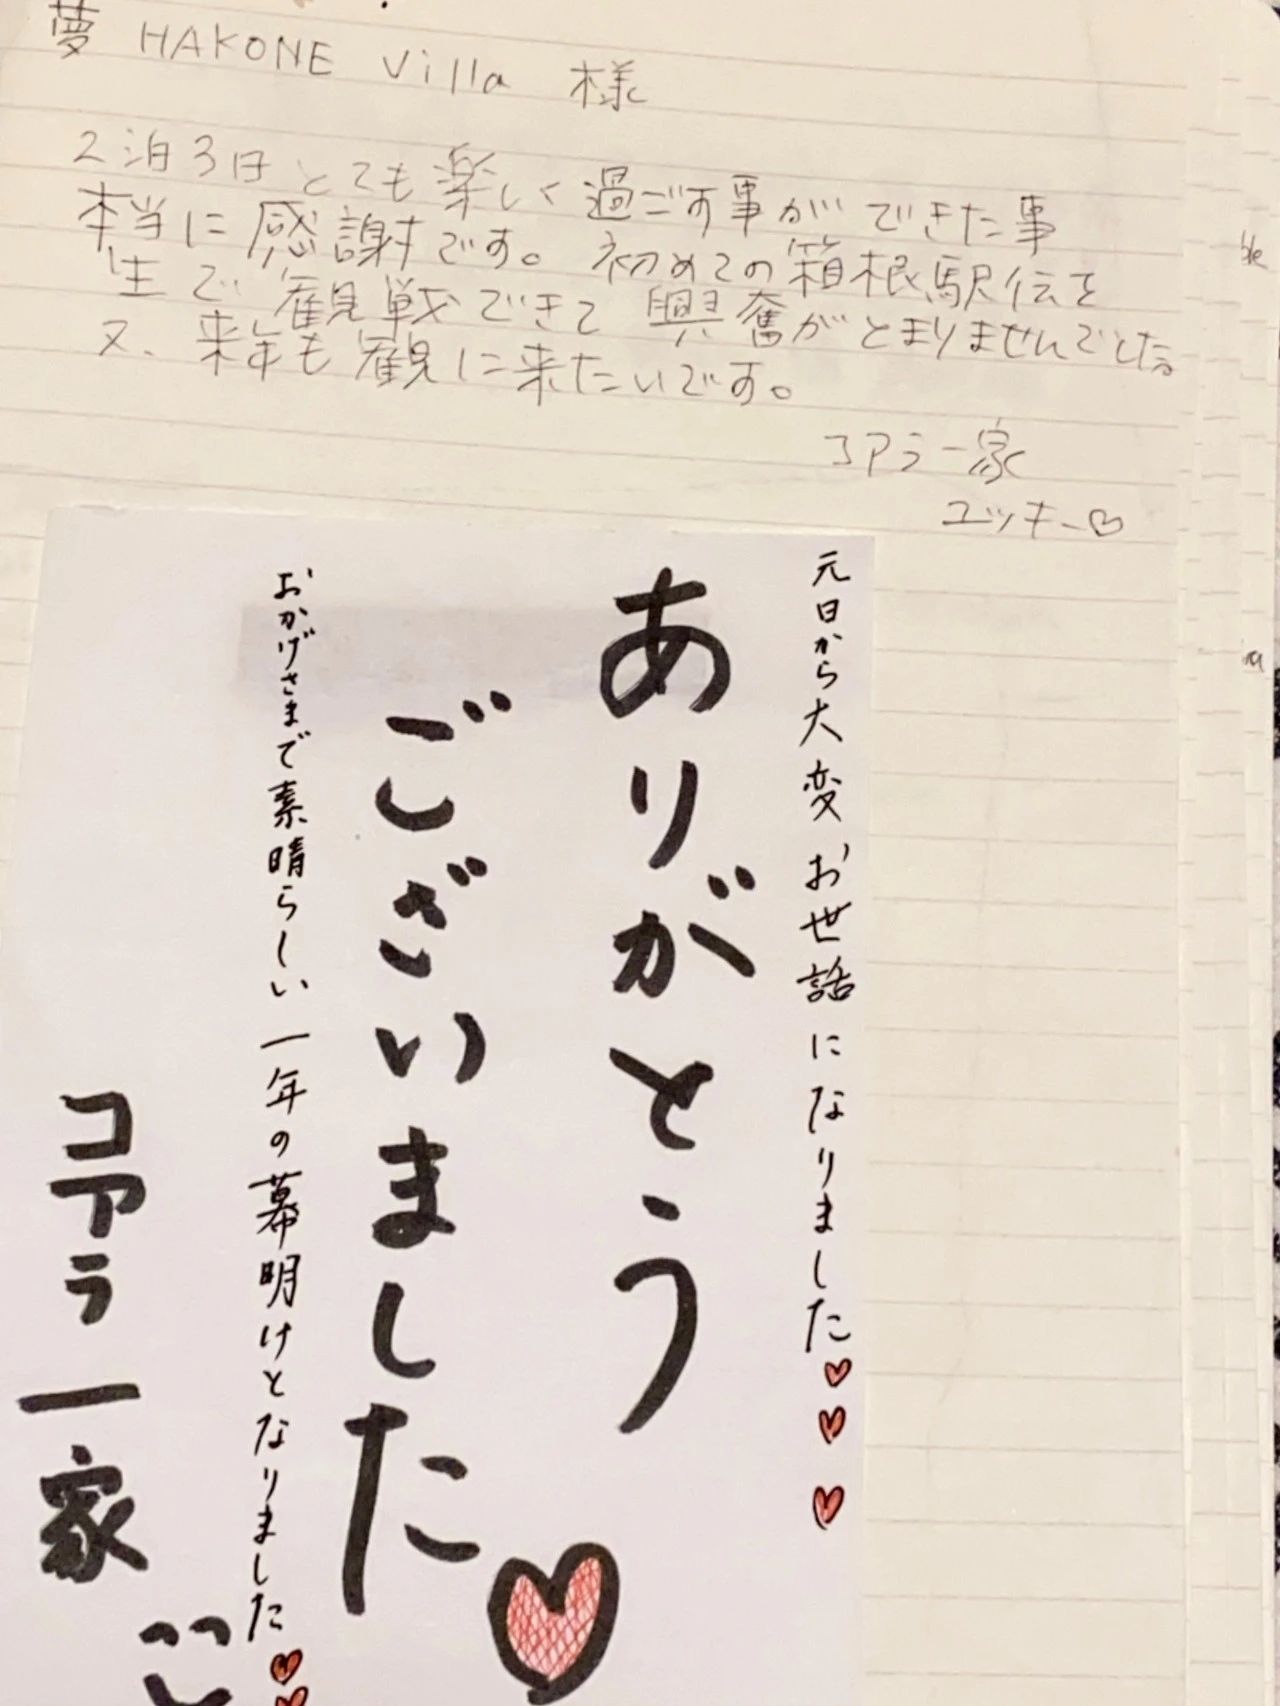 夢 HAKONE Villa 様
2泊3日とても楽しく過ごす事ができた事
本当に感謝です。初めての箱根駅伝を
生で観戦できて興奮がとまりませんでした。
又、来年も観に来たいです。
コアラ一家
ユッキー♡
元日から大変お世話になりました♥♥♥
ありがとう
ございました♥
おかげさまで素晴らしい一年の幕明けとなりました♥♥
コアラ一家